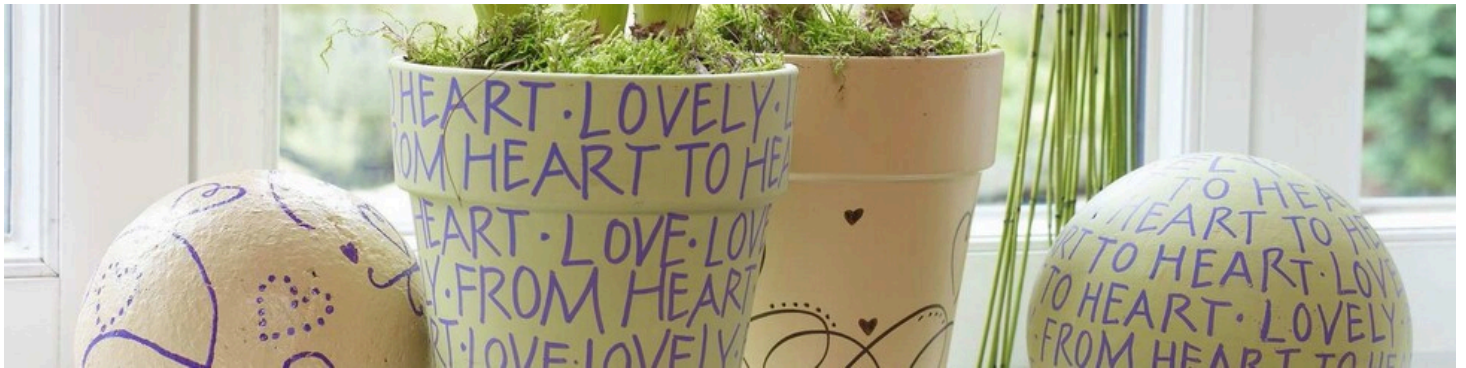 HEART · LOVELY ·
OM HEART TO HEA
HEART · LOVE · LOV
Y · FROM HEART
RT · LOVE · LOVELY ·
TO HEA
HEART TO HE
RT TO HEART · LOVE
TO HEART · LOVELY
FROM HEART TO HE